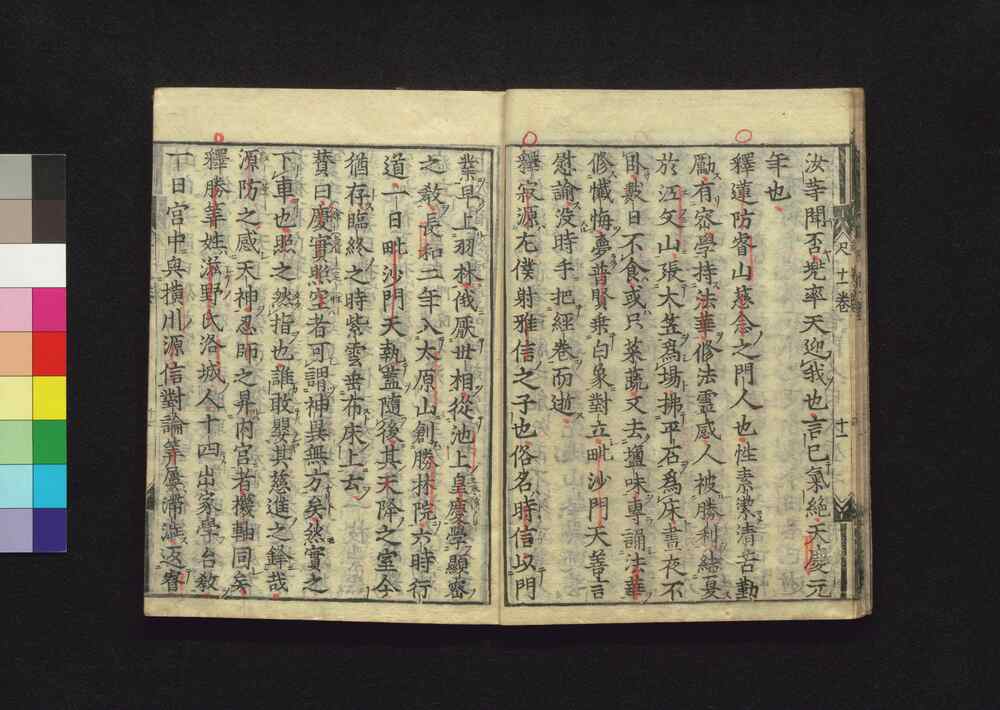 汝等聞否兜率天迎我也言已氣絶天慶元
年也
釋蓮防睿山慈念之門人也性素潔清苦勤
勵有密學持法華修法靈感人被勝利結夏
於江文山張大笠爲場拂平石爲床晝夜不
臥數日不食或只菜蔬又去鹽味專誦法華
修懺悔夢普賢乘白象對立毗沙門天善言
慰諭没時手把經卷而逝
釋寂源左僕射雅信之子也俗名時信以門
業早上羽林俄厭世相從池上皇慶學顯密
之教長和二年入太原山創勝林院六時行
道一日毗沙門天執蓋隨後其天降之室今
猶存臨終之時紫雲垂布床上去
賛曰慶實照空者可謂神異無方矣然實之
下車也照之然指也誰敢嬰其慈進之鋒哉
源防之感天神忍師之昇内宮者機軸同矣
釋勝筭姓滋野氏洛城人十四出家學台教
一日宮中與横川源信對論筭屢滯澁返睿
尺 十一卷
十一